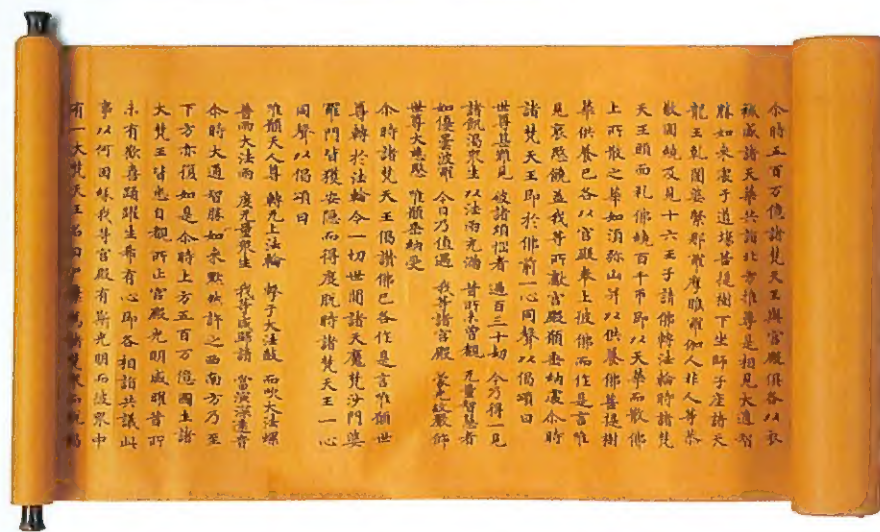 尒時五百万億諸梵天王與宮殿俱各以衣
裓盛諸天華共詣北方推尋是相見大通智
勝如来處于道場菩提樹下坐師子座諸天
龍王乾闥婆緊那羅摩睺羅伽人非人等恭
敬圍繞及見十六王子請佛轉法輪時諸梵
天王頭面礼佛繞百千帀即以天華而散佛
上所散之華如湏弥山并以供養佛菩提樹
華供養已各以宮殿奉上彼佛而作是言唯
見哀愍饒益我等所獻宮殿願垂納處尒時
諸梵天王即於佛前一心同聲以偈頌曰
世尊甚難見 破諸煩惱者 過百三十劫 今乃得一見
諸飢渴衆生 以法雨充滿 昔所未曾覩 无量智慧者
如優曇波羅 今日乃值遇 我等諸宮殿 蒙光故嚴飾
世尊大慈愍 唯願垂納受
尒時諸梵天王偈讃佛已各作是言唯願世
尊轉於法輪令一切世間諸天魔梵沙門婆
羅門皆獲安隱而得度脫時諸梵天王一心
同聲以偈頌曰
唯願天人尊 轉无上法輪 擊于大法鼓 而吹大法螺
普雨大法雨 度无量衆生 我等咸歸請 當演深遠音
尒時大通智勝如来默然許之西南方乃至
下方亦復如是尒時上方五百万億國土諸
大梵王皆悉自覩所止宮殿光明威曜昔所
未有歡喜踊躍生希有心即各相詣共議此
事以何因緣我等宮殿有斯光明而彼衆中
有一大梵天王名曰尸棄爲諸梵衆而說偈